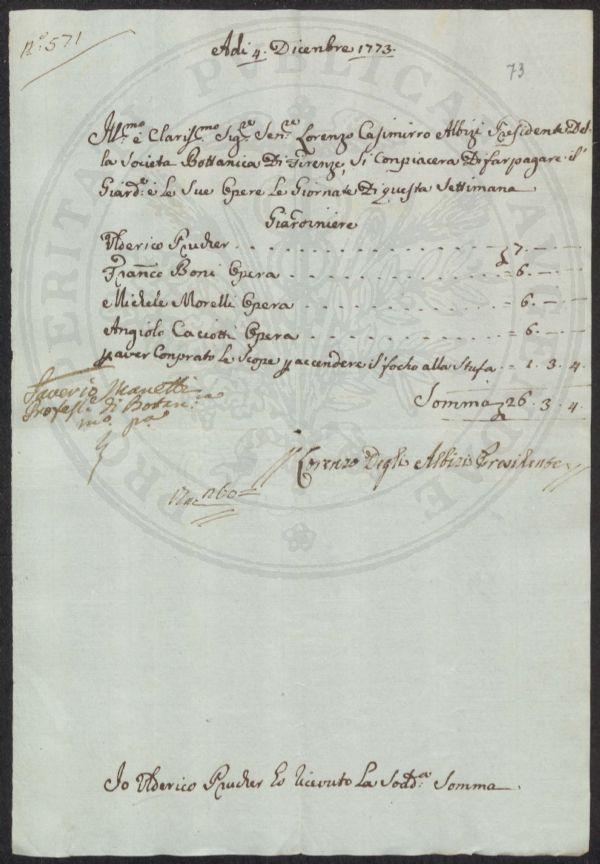 N.º 571
Adi 4. Dicenbre 1773.
73
Ill.mo e Claris.mo Sig.re Sen.re Lorenzo Casimirro Albizi Presidente Del
la Societa Bottanica Di Firenze, Si Conpiacera Di far pagare il
Giard.e e le Sue Opere Le Giornate Di questa Settimana
Giardiniere
Ulderico Prucher . . . . . . . . . . 7. —
Franco Boni Opera . . . . . . . . . . = 6. — —
Michele Morelli Opera . . . . . . . . . . = 6. — —
Angiolo Caciotti Opera . . . . . . . . . . = 6 — —
p aver Conprato Le Scope p accendere il focho alla Stufa . = 1. 3. 4
Somma 26. 3. 4.
Saverio Manetti
Profess.e di Botan.ca
m.o pa
Lorenzo Degli Albizi Presidente
1260=
Io Ulderico Prucher Ho Ricevuto La Sod.a Somma
PROSPERITATI PUBLICAE AUGENDAE